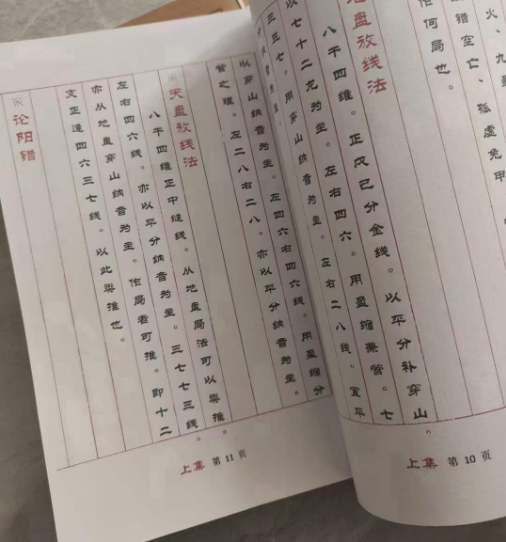 作何局也。
地盘放线法
八干四维。正戊己分金线。以平分补穿山。七
以七十二龙为主。左右四六。用盈缩兼管。
三三七。用穿山纳音为主。左右二八线。宜平
上集 第 10 页
以穿山纳音为主。左四六右四六线。用盈缩分
管之理。左二八右二八。亦以平分纳音为主。
※天盘放线法
八干四维正中缝线。从地盘局法可以类推。
左右四六线。亦以平分纳音为主。三七七三线。
亦从地盘穿山纳音为主。作局者可推。即十二
支正逢四六三七线。以此类推也。
※论阳错
上集 第 11 页